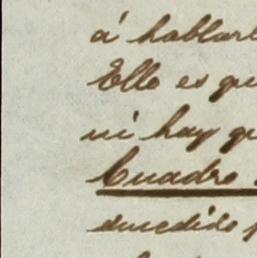 á hablarl
Ello es qu
ni hay qu
Cuadro